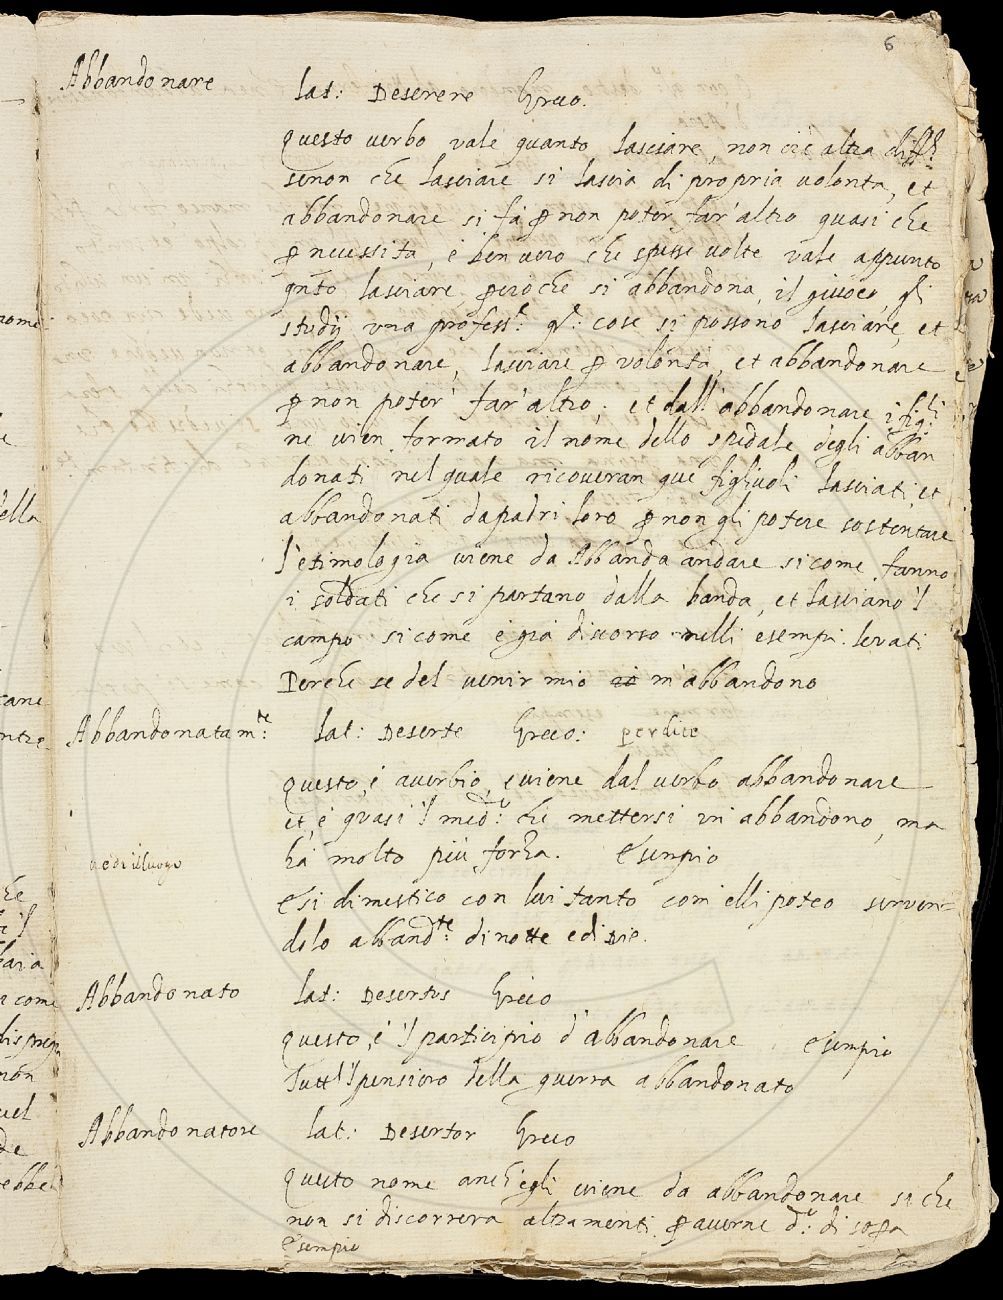 6
Abbandonare
lat: Deserere Greco.
Questo uerbo vale quanto lasciare, non ci è altra diff.ª
senon che lasciare si lascia di propria uolonta, et
abbandonare si fà ꝑ non poter far'altro quasi che
ꝑ necessita, è ben uero che spesse uolte vale appunto
qnto lasciare, ꝑcioche si abbandona, il giuoco, gli
studij vna profess.e q.e cose si possono lasciare, et
abbandonare, lasciare ꝑ volonta, et abbandonare
ꝑ non poter' far'altro; et dall'abbandonare i fig.li
ne uien formato il nome dello spedale degli abban
donati nel quale ricoueran que figliuoli lasciati, et
abbandonati da padri loro ꝑ non gli potere sostentare
l'etimologia uiene da Abbanda andare si come fanno
i soldati che si partano dalla banda, et lasciano 'l
campo si come è già discorso nelli esempi leuati
Perche se del uenir mio m'abbandono
Abbandonatam.te
lat: Deserte Greco: perdice
Questo, è auerbio, e uiene dal uerbo abbandonare
et, è quasi 'l med.o che mettersi in abbandono, ma
hà molto più forza. Esempio
uedi il luogo
E si dimestico con lui tanto com elli poteo seruen=
dolo abband.te di notte e di Die.
Abbandonato
lat: Desertus Greco
Questo, è 'l participio d'abbandonare Esempio
Tutt'l pensiero della guerra abbandonato
Abbandonatore
lat: Desertor Greco
Questo nome anch'egli uiene da abbandonare si che
non si discorrera altramenti ꝑ auerne d.o di sopa
Esempio